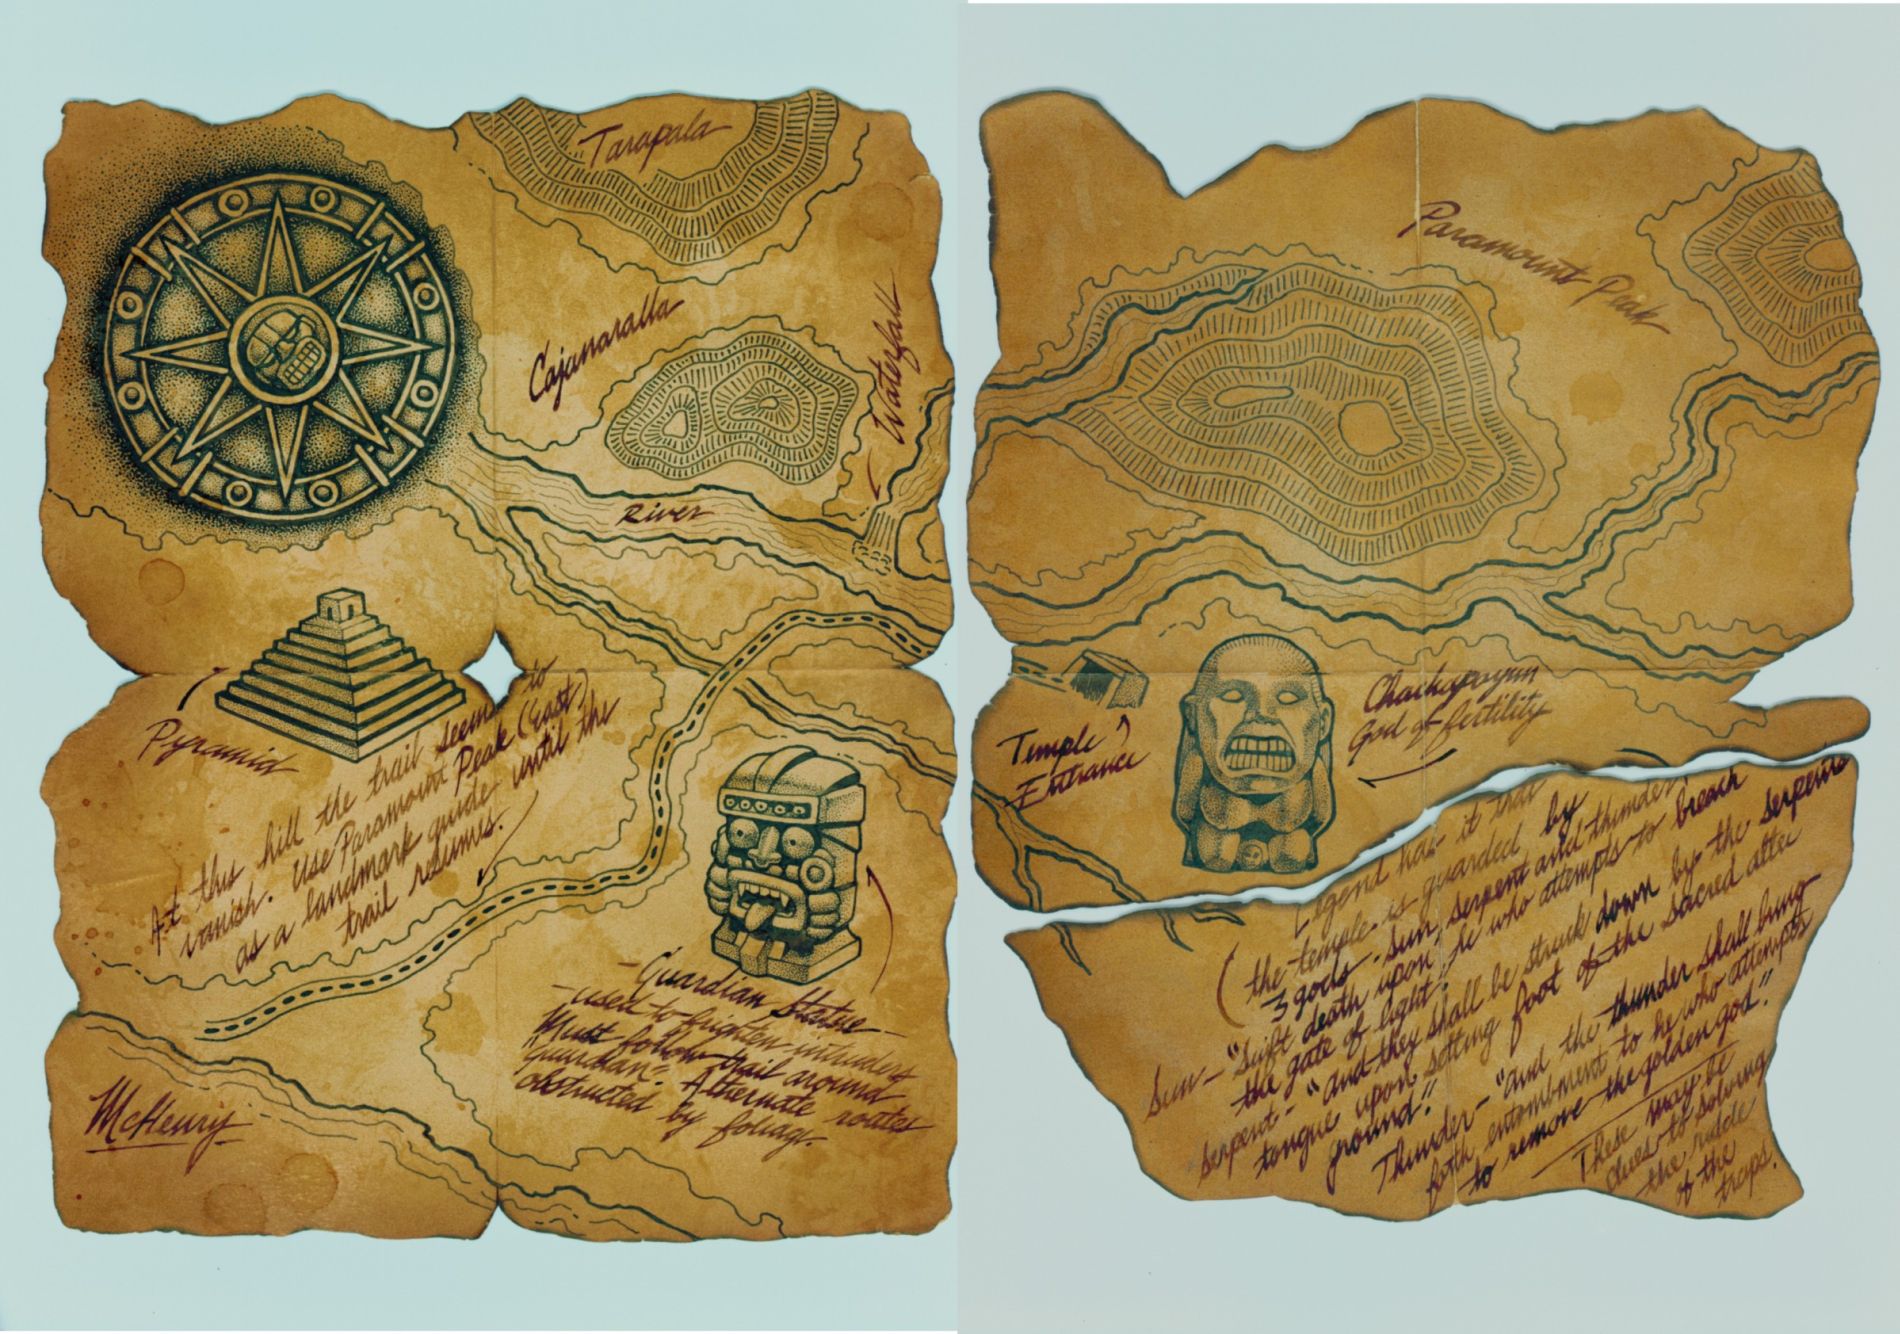 Tarapala
Cajanaralla
Waterfall
River
Pyramid
At this hill the trail seems to
vanish. Use Paramount Peak (East)
as a landmark guide until the
trail resumes.
-Guardian Statue-
-used to frighten intruders
Must follow trail around
Guardian - Alternate routes
obstructed by foliage.
McHenry
Paramount Peak
Temple
Entrance
Chachapoyan
God of fertility
Legend has it that
the temple is guarded by
3 gods - sun, serpent and thunder.
Sun - "Swift death upon he who attempts to breach
the gate of light."
serpent - "and they shall be struck down by the serpents
tongue upon setting foot of the sacred
ground."
Thunder - "and the thunder shall bring
forth entombment to he who attempts
to remove the golden god."
These may be
clues to solving
the riddle
of the
traps.